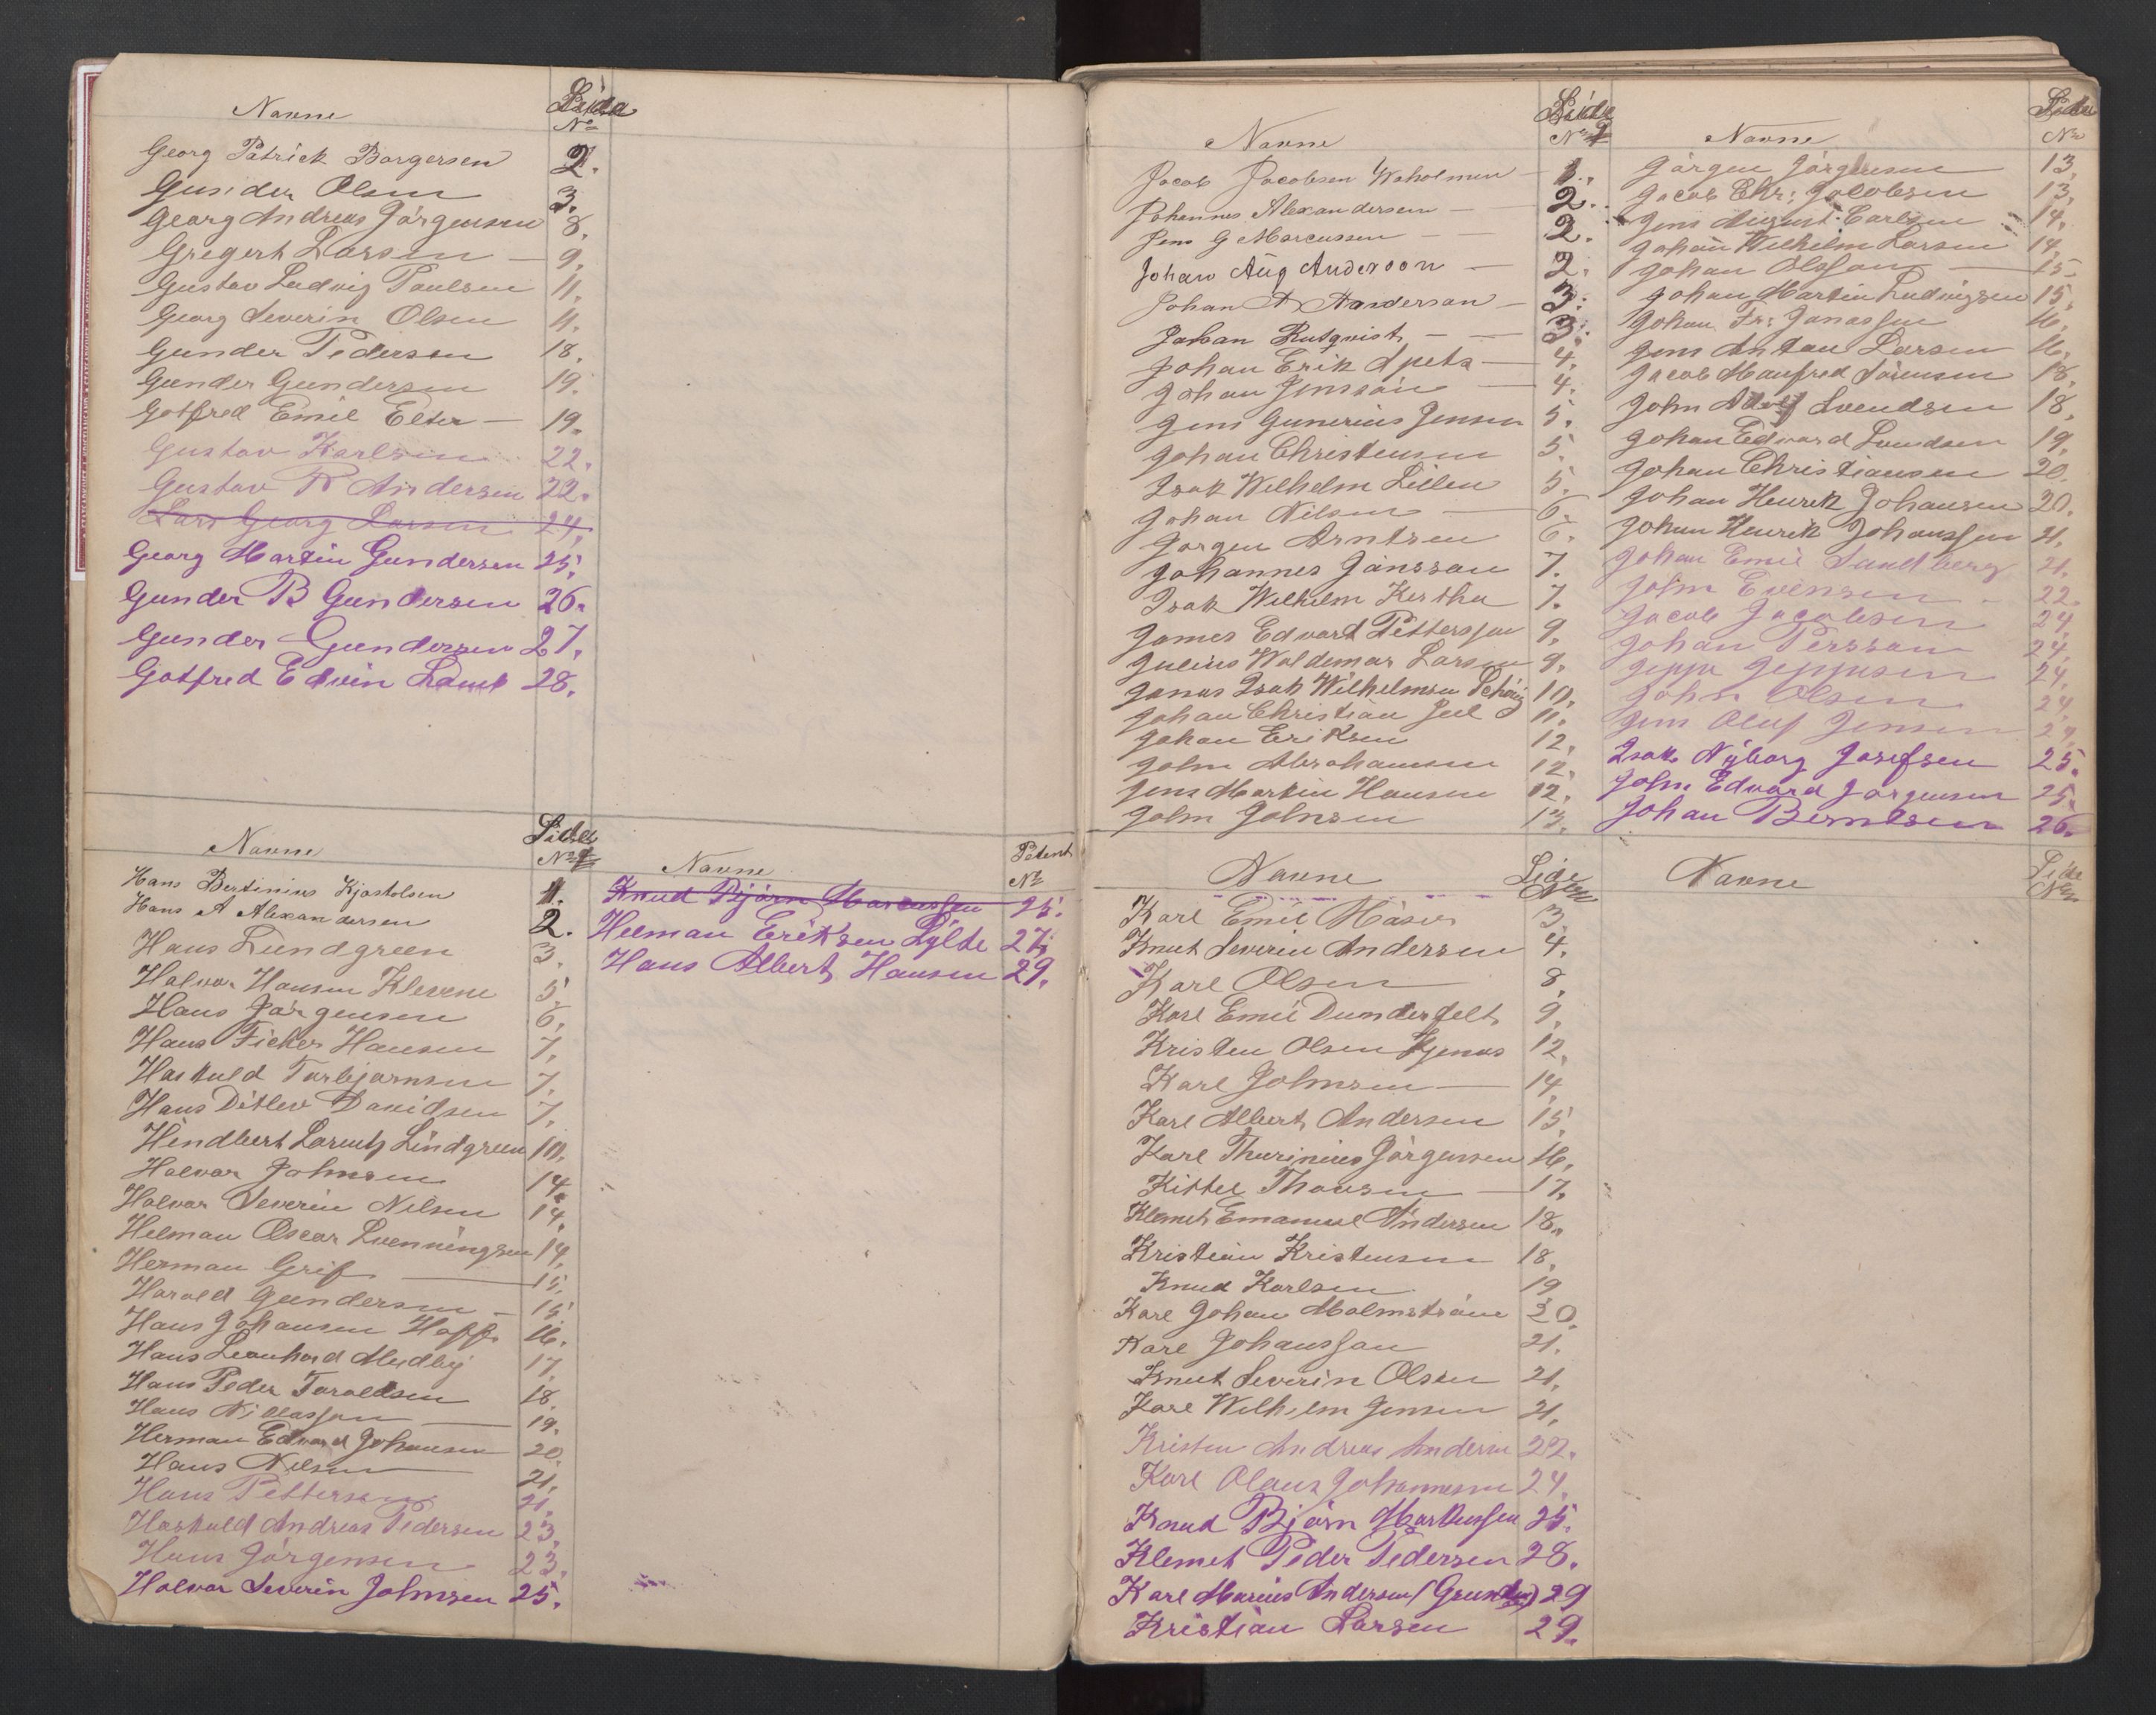 Navne Side No
Georg Patrick Borgersen 2.
Gunder Olsen 3.
Georg Andreas Jörgensen 8.
Gregert Larsen — 9.
Gustav Ludvig Paulsen 11.
Georg Severin Olsen 11.
Gunder Pedersen 18.
Gunder Gundersen 19.
Gotfred Emil Elter — 19.
Gustav Karlsen 22.
Gustav R Andersen 22.
Lars Georg Larsen 24.
Georg Martin Gundersen 25.
Gunder B Gundersen 26.
Gunder Gundersen 27.
Gotfred Edvin Lamb 28.
Navne Side No
Hans Bertinius Kjostolsen 1.
Hans A Alexandersen 2.
Hans Lundgreen 3.
Halvor Hansen Klevene 5.
Hans Jörgensen 6.
Hans Ficher Hansen 7.
Haskuld Torbjornsen 7.
Hans Ditlev Davidsen 7.
Hindbert Lorentz Lindgreen 10.
Halvor Johnsen 14.
Halvor Severin Nilsen 14.
Helman Oscar Svenningsen 14.
Herman Grif — 15.
Harald Gundersen — 15.
Hans Johansen Hoff 16.
Hans Leonhard 17.
Hans Peder Taraldsen 18.
Hans Niclassen — 19.
Herman Edvard Johansen 20.
Hans Nilsen — 21.
Hans Pettersen 21.
Haskuld Andreas Pedersen 23.
Hans Jörgensen 23.
Halvor Severin Johnsen 25.
Navne Patent No
Knud Björn Marcussen 25.
Helman Eriksen Lylte 27.
Hans Albert Hansen 29.
Navne Side No
Jacob Jacobsen Waholmen — 1.
Johannes Alexandersen — 2.
Jens G Marcussen — — 2.
Johan Aug Anderson — 2.
Johan A Anderson — 3.
Johan Rutqvist — — 3.
Johan Erik Speta — 4.
Johan Jonsson — 4.
Jens Gunerius Jensen 5.
Johan Christensen 5.
Isak Wilhelm Lillen 5.
Johan Nilsen — 6.
Jorgen Arntsen 6.
Johannes Jansson 7.
Isak Wilhelm Kerthu 7.
James Edvard Pettersson 9.
Julius Waldemar Larsen 9.
Jonas Isak Wilhelmsen 10.
Johan Christian Juel 11.
Johan Eriksen 12.
John Abrahamsen 12.
Jens Martin Hansen 12.
John Johnsen 13.
Navne Side No
Jörgen Jörgensen 13.
Jacob Chr: Jacobsen 13.
Jens August Carlsen — 14.
Johan Wilhelm Larsen 14.
Johan Olsson — 15.
Johan Martin Ludvigsen 15.
Johan Fr: Jonassen 16.
Jens Anton Larsen 16.
Jacob Manfred Sörensen 18.
John Adolf Svendsen 18.
Johan Edvard Svendsen 19.
Johan Christiansen 20.
Johan Henrik Johansen 20.
Johan Henrik Johanssen 21.
Johan Emil Sundberg 21.
John Evensen 22.
Jacob Jacobsen 24.
Johan Persson 24.
Jeppe Jeppesen 24.
John Olsen 24.
Jens Oluf Jensen 24.
Isak Nyborg Josefsen 25.
John Edvard Jorgensen 25.
Johan Berntsen 26.
Navne Side Non
Karl Emil Häsir 3.
Knut Severin Andersen 4.
Karl Olsen 8.
Karl Emil Dunderfelt 9.
Kristen Olsen 12.
Karl Johnsen — 14.
Karl Albert Andersen 15.
Karl Thurinius Jörgensen 16.
Kittel Thovsen — 17.
Klemet Emanuel Andersen 18.
Kristian Kristensen 18.
Knud Karlsen 19
Karl Johan Malmström 20.
Karl Johansson 21.
Knut Severin Olsen 21.
Karl Wilhelm Jensen 21.
Kristen Andreas Andersen 22.
Karl Olaus Johannesen 24.
Knud Björn Markussen 25.
Klemet Peder Pedersen 28.
Karl Marius Andersen 29
Kristian Larsen 29.
Navne Side Non